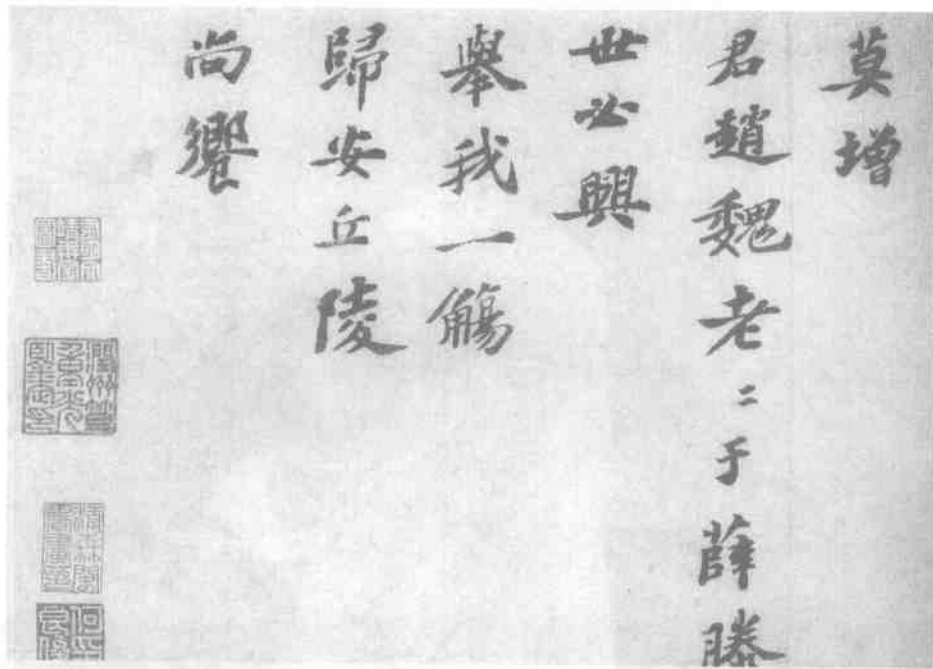 莫增
君趙魏老〻于薛滕
世必興
舉我一觴
歸安丘陵
尚饗